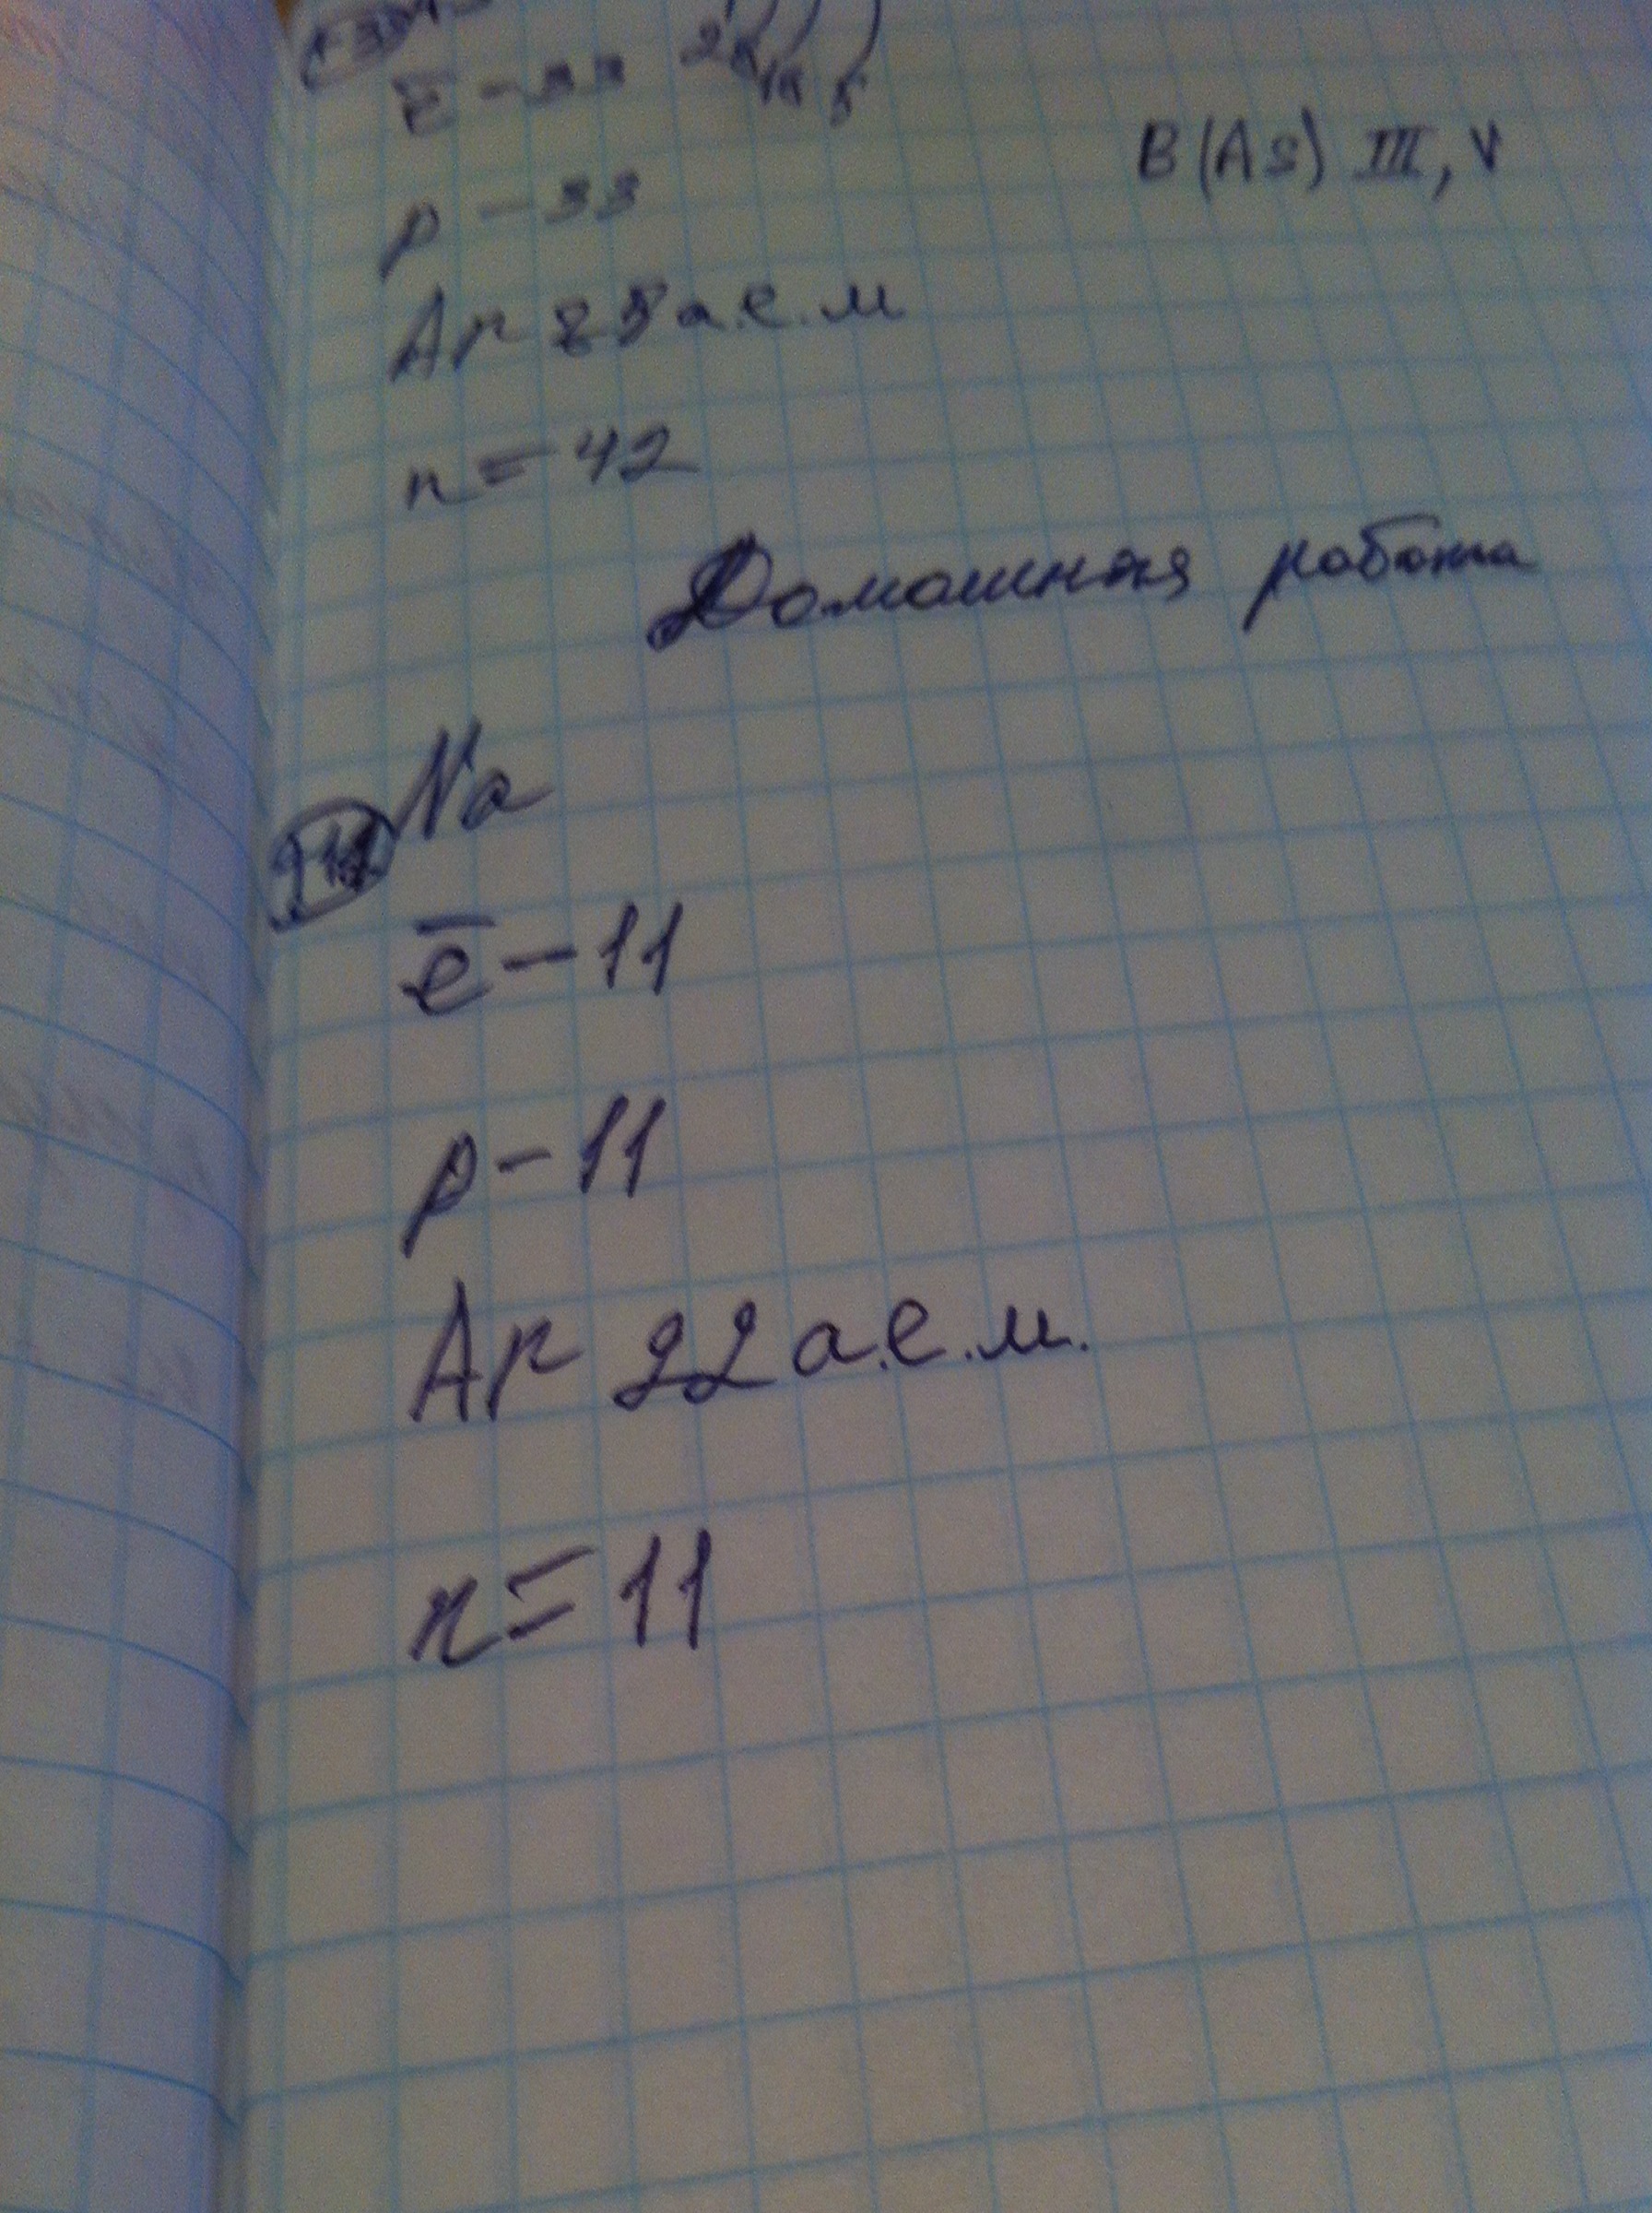 +33
ē - 33 2 8 18 5
p - 33
B(As) III, V
Ar 75 а.е.м
n = 42
Домашняя работа
+11 Na
ē - 11
p - 11
Ar 22 а.е.м.
n = 11